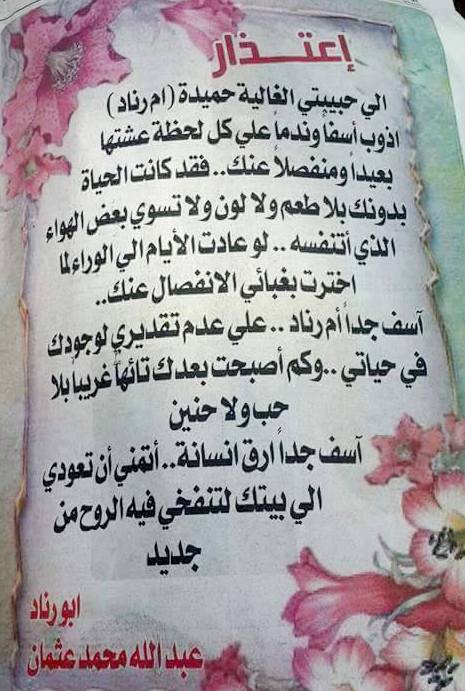 إعتـــذار
الي حبيبتي الغالية حميدة (ام رناد)
اذوب أسفاً وندماً علي كل لحظة عشتها
بعيداً ومنفصلاً عنك.. فقد كانت الحياة
بدونك بلا طعم ولا لون ولا تسوي بعض الهواء
الذي أتنفسه .. لو عادت الأيام الي الوراء لما
اخترت بغبائي الانفصال عنك..
آسف جداً أم رناد .. علي عدم تقديري لوجودك
في حياتي .. وكم أصبحت بعدك تائهاً غريباً بلا
حب ولا حنين
آسف جداً ارق انسانة.. أتمني أن تعودي
الي بيتك لتنفخي فيه الروح من
جديد
ابو رناد
عبد الله محمد عثمان